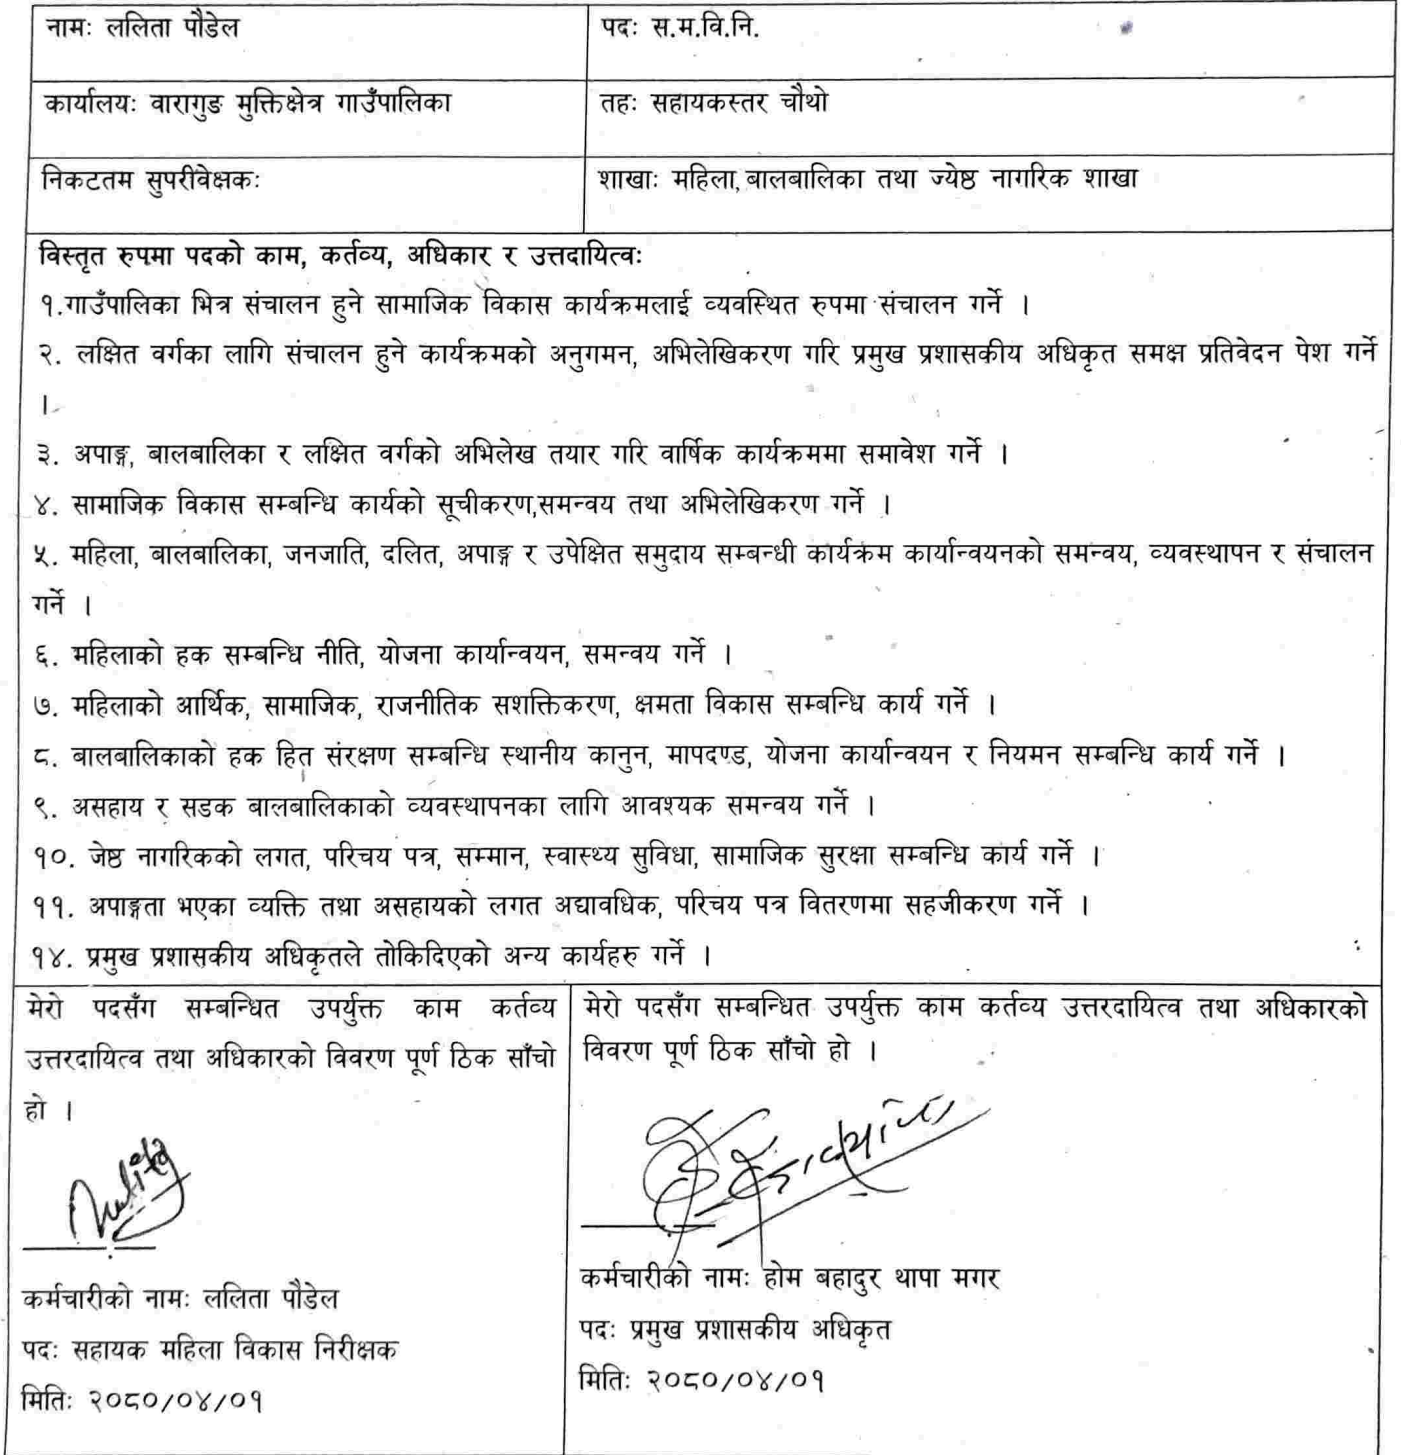 नामः ललिता पौडेल
पदः स.म.वि.नि.
कार्यालयः वारागुङ मुक्तिक्षेत्र गाउँपालिका
तहः सहायकस्तर चौथो
निकटतम सुपरीवेक्षकः
शाखाः महिला,बालबालिका तथा ज्येष्ठ नागरिक शाखा
विस्तृत रुपमा पदको काम, कर्तव्य, अधिकार र उत्तदायित्वः
१.गाउँपालिका भित्र संचालन हुने सामाजिक विकास कार्यक्रमलाई व्यवस्थित रुपमा संचालन गर्ने ।
२. लक्षित वर्गका लागि संचालन हुने कार्यक्रमको अनुगमन, अभिलेखिकरण गरि प्रमुख प्रशासकीय अधिकृत समक्ष प्रतिवेदन पेश गर्ने
।
३. अपाङ्ग, बालबालिका र लक्षित वर्गको अभिलेख तयार गरि वार्षिक कार्यक्रममा समावेश गर्ने ।
४. सामाजिक विकास सम्बन्धि कार्यको सूचीकरण,समन्वय तथा अभिलेखिकरण गर्ने ।
५. महिला, बालबालिका, जनजाति, दलित, अपाङ्ग र उपेक्षित समुदाय सम्बन्धी कार्यक्रम कार्यान्वयनको समन्वय, व्यवस्थापन र संचालन
गर्ने ।
६. महिलाको हक सम्बन्धि नीति, योजना कार्यान्वयन, समन्वय गर्ने ।
७. महिलाको आर्थिक, सामाजिक, राजनीतिक सशक्तिकरण, क्षमता विकास सम्बन्धि कार्य गर्ने ।
८. बालबालिकाको हक हित संरक्षण सम्बन्धि स्थानीय कानुन, मापदण्ड, योजना कार्यान्वयन र नियमन सम्बन्धि कार्य गर्ने ।
९. असहाय र सडक बालबालिकाको व्यवस्थापनका लागि आवश्यक समन्वय गर्ने ।
१०. जेष्ठ नागरिकको लगत, परिचय पत्र, सम्मान, स्वास्थ्य सुविधा, सामाजिक सुरक्षा सम्बन्धि कार्य गर्ने ।
११. अपाङ्गता भएका व्यक्ति तथा असहायको लगत अद्यावधिक, परिचय पत्र वितरणमा सहजीकरण गर्ने ।
१४. प्रमुख प्रशासकीय अधिकृतले तोकिदिएको अन्य कार्यहरु गर्ने ।
मेरो पदसँग सम्बन्धित उपर्युक्त काम कर्तव्य
उत्तरदायित्व तथा अधिकारको विवरण पूर्ण ठिक साँचो
हो ।
Lalita
कर्मचारीको नामः ललिता पौडेल
पदः सहायक महिला विकास निरीक्षक
मितिः २०८०/०४/०१
मेरो पदसँग सम्बन्धित उपर्युक्त काम कर्तव्य उत्तरदायित्व तथा अधिकारको
विवरण पूर्ण ठिक साँचो हो ।
कर्मचारीको नामः होम बहादुर थापा मगर
पदः प्रमुख प्रशासकीय अधिकृत
मितिः २०८०/०४/०१